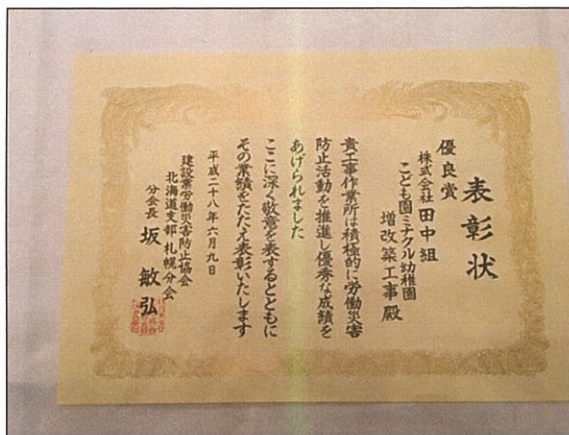 表彰状
優良賞
株式会社 田中組
こども園ミナクル幼稚園
増改築工事 殿
貴工事作業所は積極的に労働災害
防止活動を推進し優秀な成績を
あげられました
ここに深く敬意を表するとともに
その業績をたたえ表彰いたします
平成二十八年六月九日
建設業労働災害防止協会
北海道支部 札幌分会
分会長 坂 敏弘